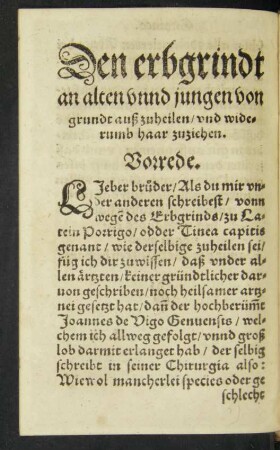 Den erbgrindt
an alten vnnd jungen von
grundt auß zuheilen/ vnd wide-
rumb haar zuziehen.
Vorrede.
LJeber brüder/ Als du mir vn-
der anderen schreibest/ vonn
wegẽ des Erbgrinds/ zu La-
tein Porrigo/ odder Tinea capitis
genant/ wie derselbige zuheilen sei/
füg ich dir zuwissen/ daß vnder al-
len ärtzten/ keiner gründtlicher dar-
uon geschriben/ noch heilsamer artz-
nei gesetzt hat/ dañ der hochberümt̃
Joannes de Vigo Genuensis/ wel-
chem ich allweg gefolgt/ vnnd groß
lob darmit erlanget hab/ der selbig
schreibt in seiner Chirurgia also:
Wiewol mancherlei species oder ge
schlecht